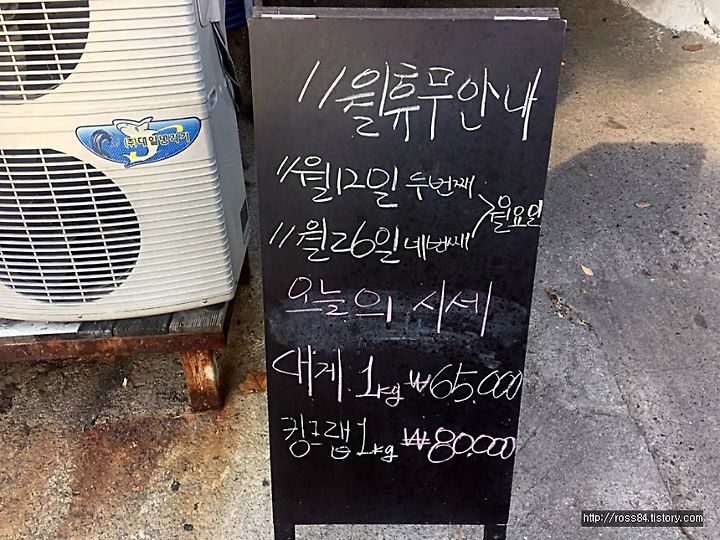 11월휴무안내
11월12일 두번째
11월26일 네번째
월요일
오늘의 시세
대게 1kg ₩65.000
킹크랩 1kg ₩80.000
http://ross84.tistory.com